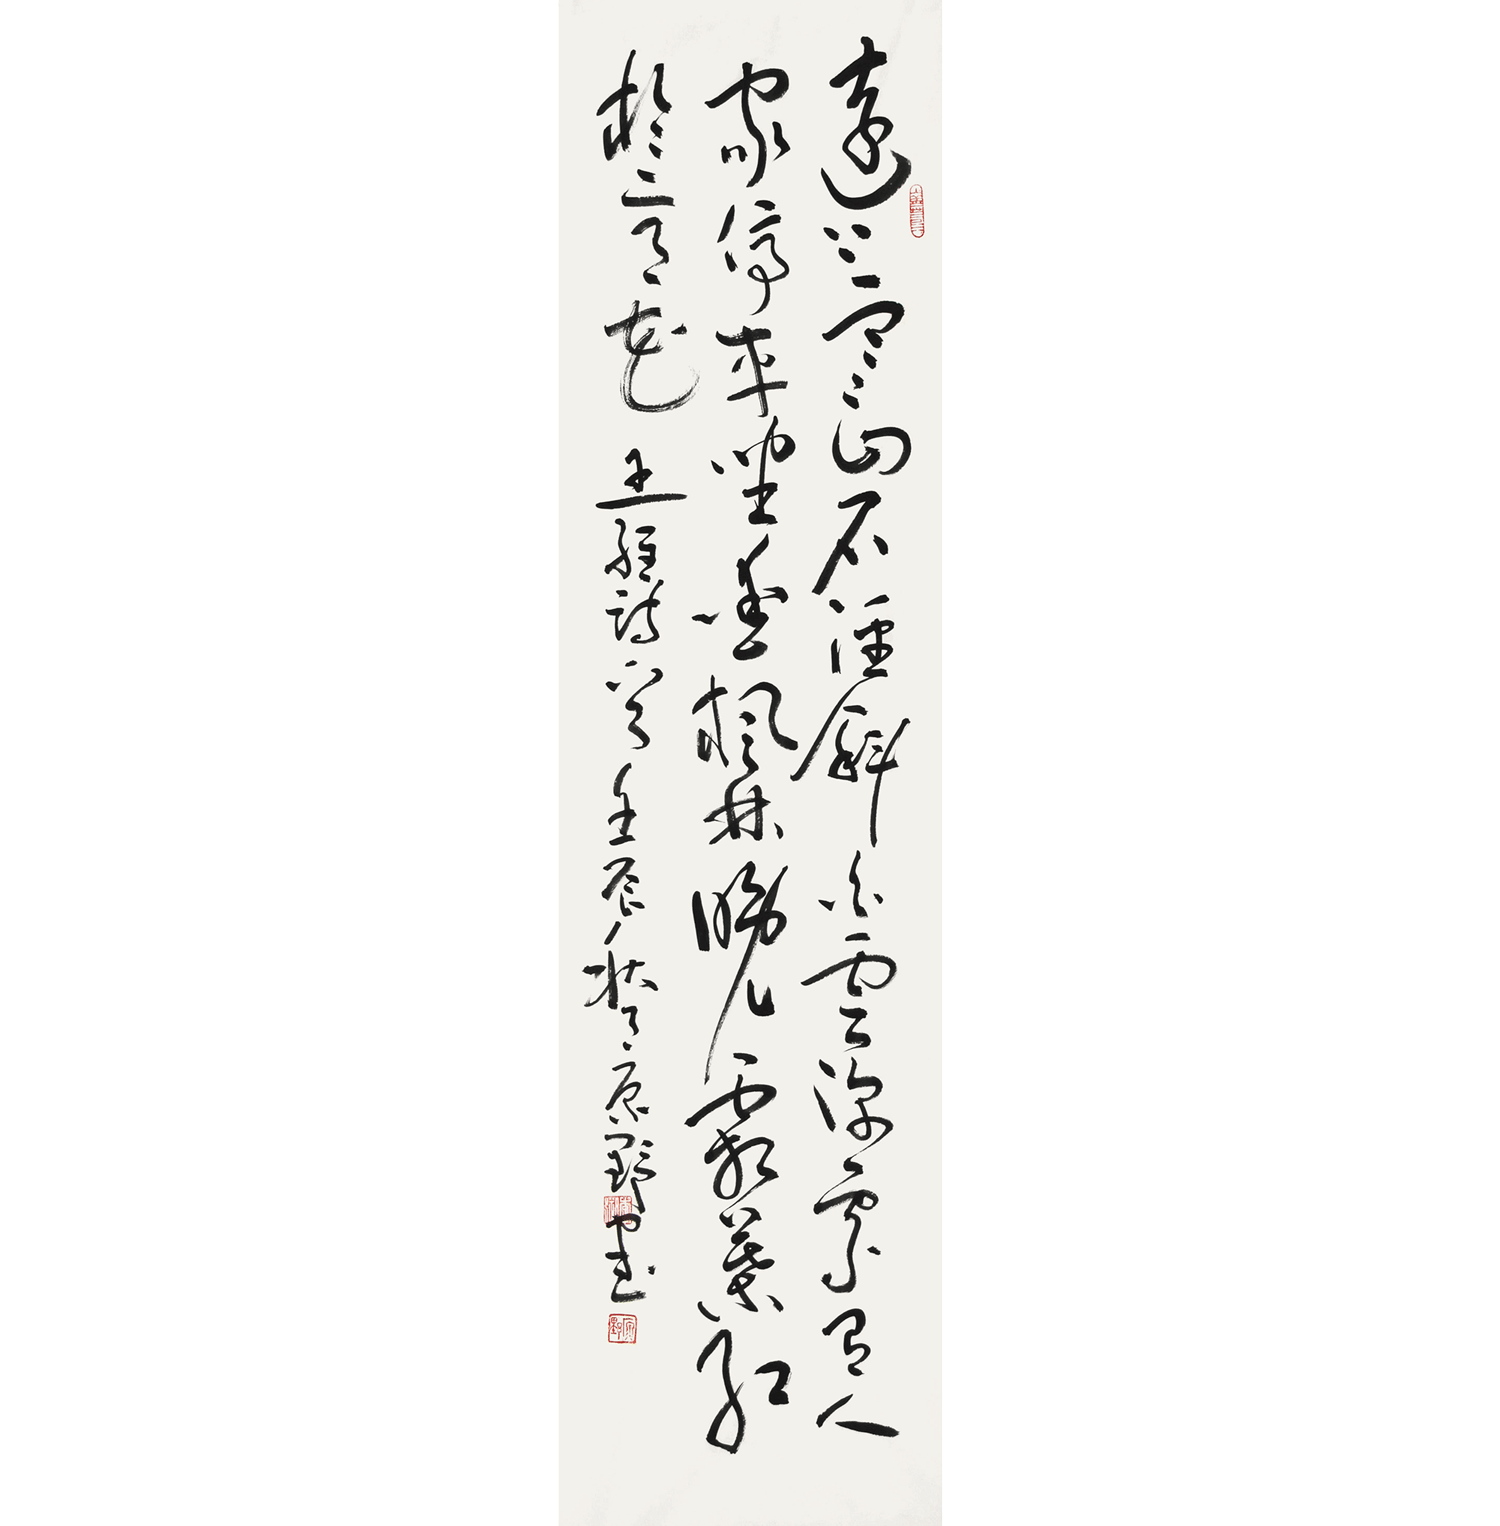 遠上寒山石徑斜白雲深處有人
家停車坐愛楓林晚霜葉紅
於二月花 王維詩 壬辰秋月原野書
原野